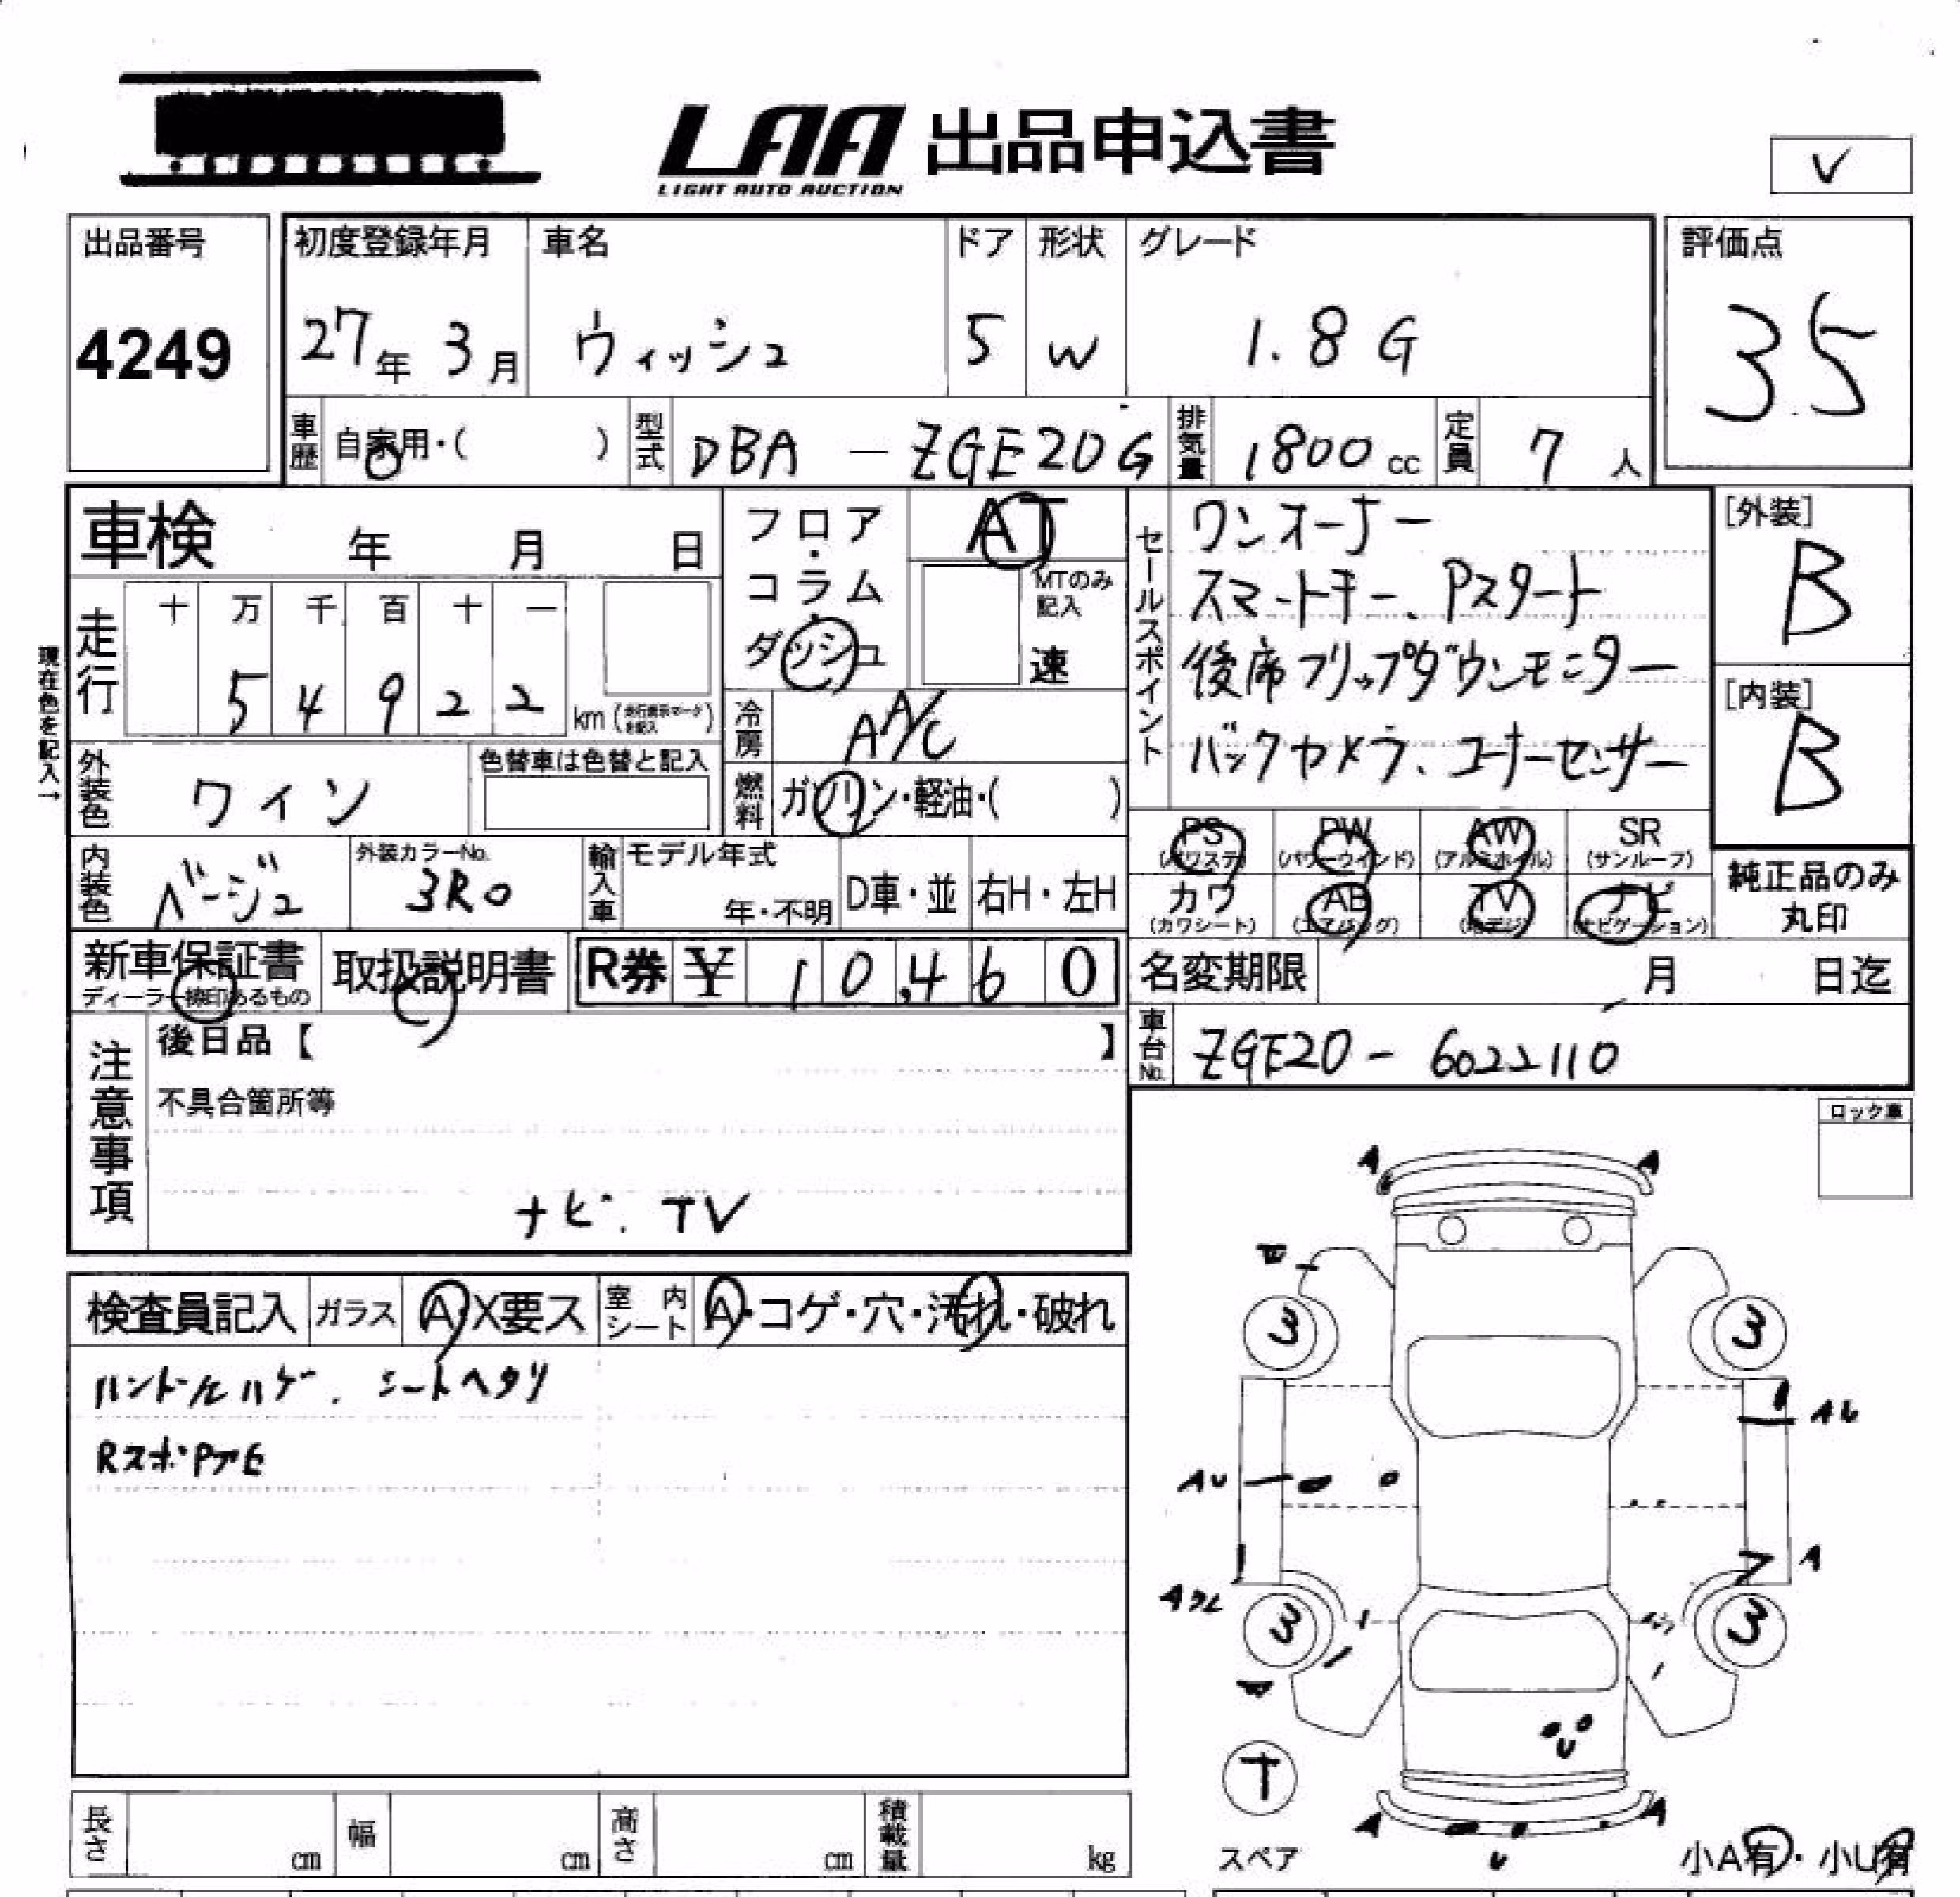 LAA 出品申込書
LIGHT AUTO AUCTION
V
出品番号
4249
初度登録年月 車名 ドア 形状 グレード
27年 3月 ウィッシュ 5 W 1.8 G
評価点
3.5
車歴 自家用・( ) 型式 DBA - ZGE20G 排気量 1800 cc 定員 7 人
車検 年 月 日
現在色を記入→
走行 十 万 千 百 十 一
5 4 9 2 2 km (走行表示マークを記入)
フロア・コラム・ダッシュ
AT
MTのみ記入
速
冷房 AA/C
燃料 ガソリン・軽油・( )
外装色 ワイン 色替車は色替と記入
内装色 ベージュ 外装カラーNo. 3R0 輸入車 モデル年式 年・不明 D車・並 右H・左H
セールスポイント
ワンオーナー
スマートキー、Pスタート
後席フリップダウンモニター
バックカメラ、コーナーセンサー
[外装]
B
[内装]
B
PS (パワステ) PW (パワーウインド) AW (アルミホイル) SR (サンルーフ)
カワ (カワシート) AB (エアバッグ) TV (地デジ) ナビ (ナビゲーション)
純正品のみ丸印
新車保証書 ディーラー捺印あるもの 取扱説明書 R券 ¥ 10,460
名変期限 月 日迄
車台No. ZGE20 - 6022110
注意事項
後日品【 】
不具合箇所等
ナビ. TV
ロック車
検査員記入 ガラス A・X要ス 室内シート A・コゲ・穴・汚れ・破れ
ハンドルハゲ. シートヘタリ
A A
3 3
AU
AU
A
3 3
T
スペア
U
A A
U
小A有・小U有
長さ cm 幅 cm 高さ cm 積載量 kg